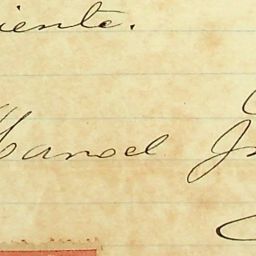 iente.
Manoel